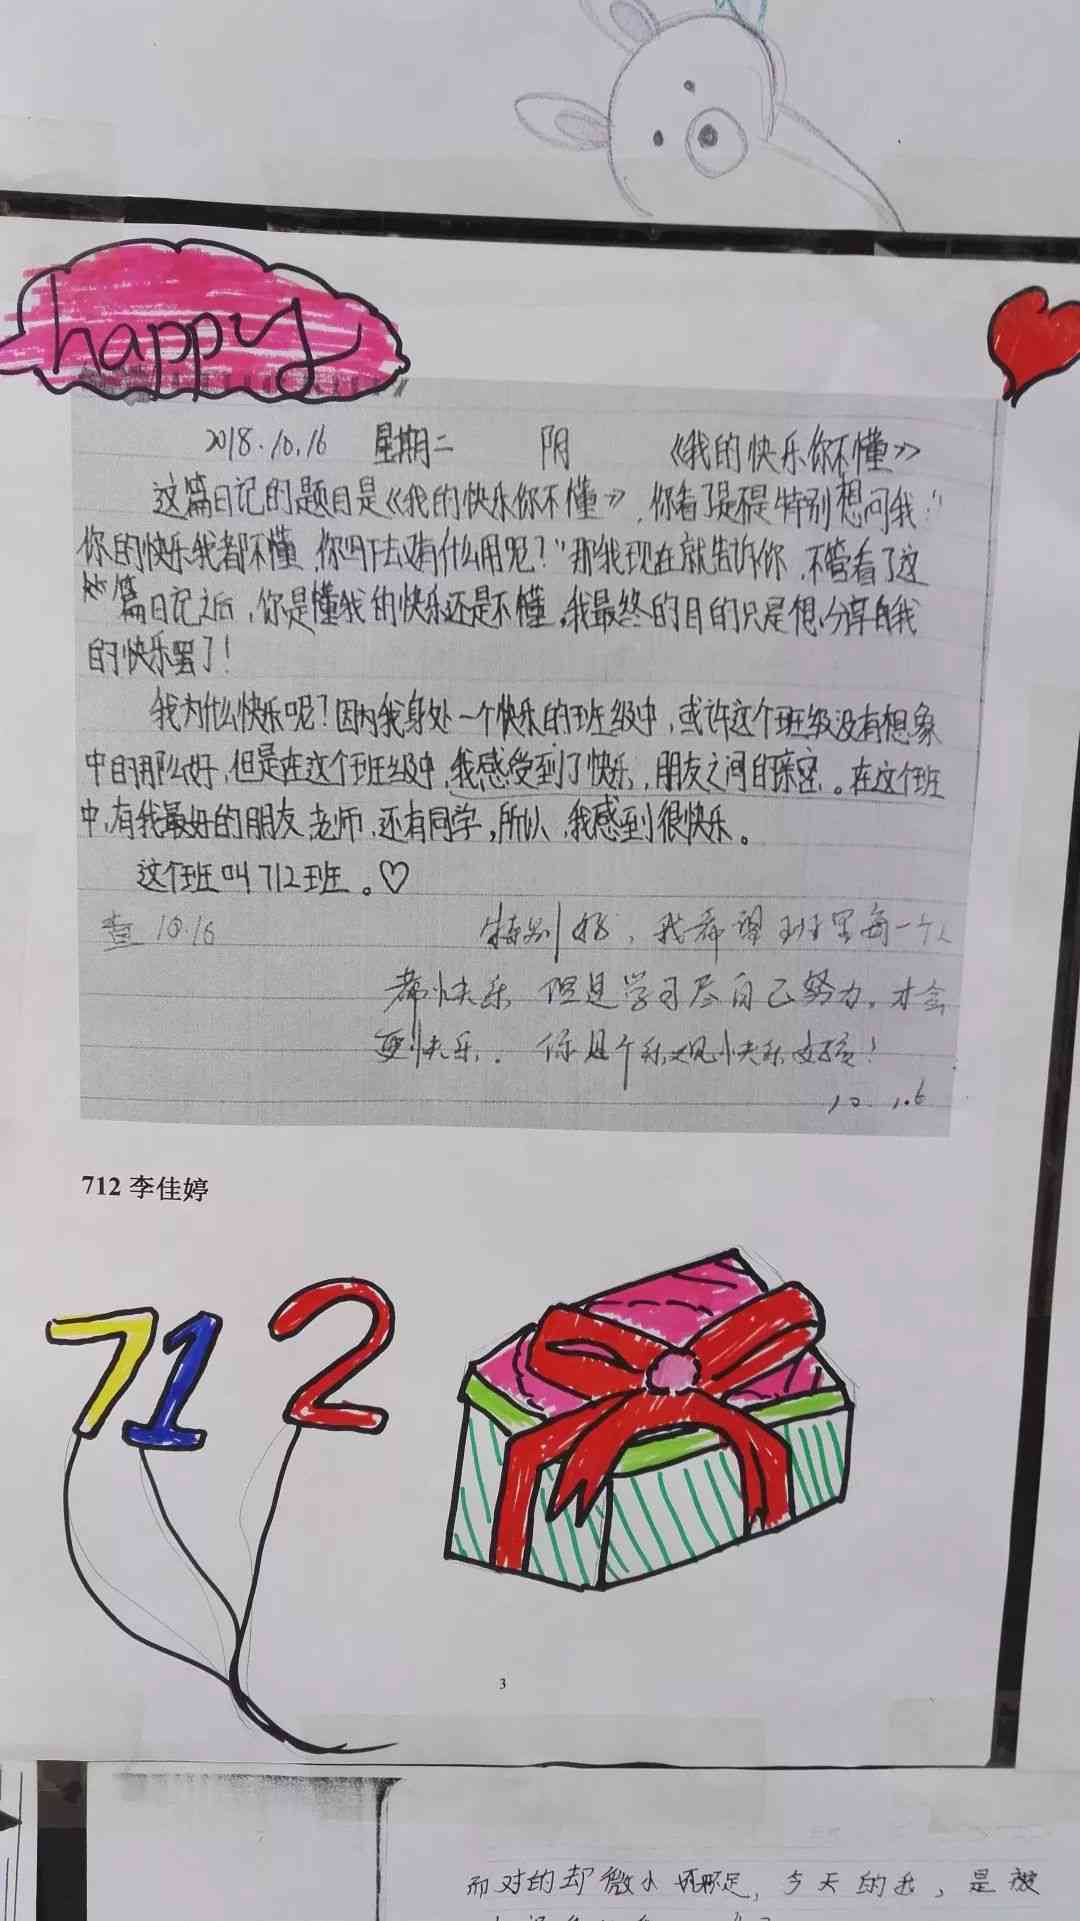 happy
2018.10.16 星期二 阴 《我的快乐你不懂》
这篇日记的题目是《我的快乐你不懂》,你看了是不是特别想问我:"
你的快乐我都不懂,你写下去又有什么用呢?"那我现在就告诉你,不管看了这
篇日记之后,你是懂我的快乐还是不懂,我最终的目的只是想分享自我
的快乐罢了!
我为什么快乐呢?因为我身处一个快乐的班级中,或许这个班级没有想象
中的那么好,但是在这个班级中,我感受到了快乐,朋友之间的亲密。在这个班
中,有我最好的朋友,老师,还有同学,所以,我感到很快乐。
这个班叫712班。♡
查 10.16
特别好,我希望班里每一个人
都快乐 但是学习尽自己努力,才会
更快乐. 你是个乐观快乐女孩!
10.16
712 李佳婷
712
3
而对的却微小 足,今天的我,是被